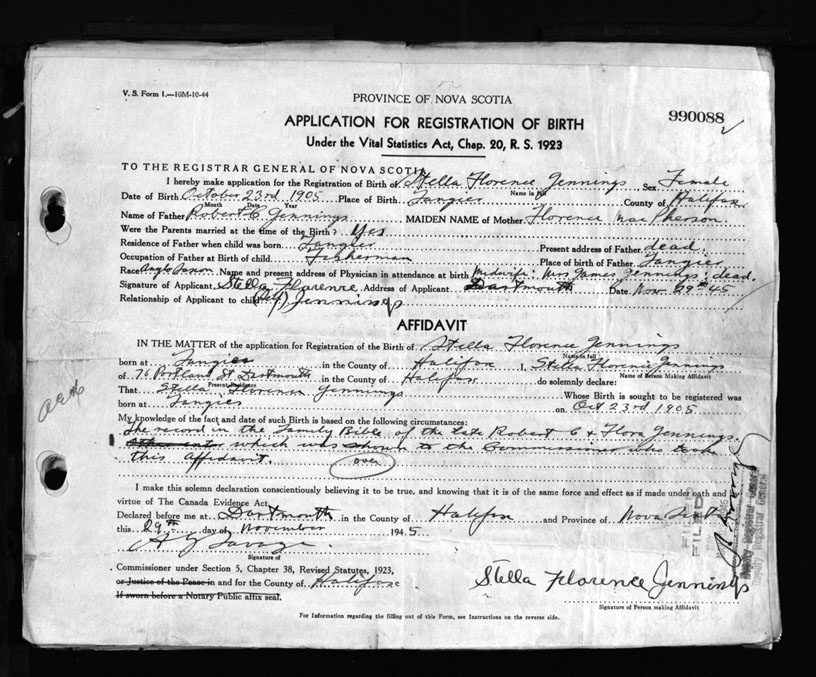 V. S. Form 1.—10M-10-44
PROVINCE OF NOVA SCOTIA
990088
APPLICATION FOR REGISTRATION OF BIRTH
Under the Vital Statistics Act, Chap. 20, R. S. 1923
TO THE REGISTRAR GENERAL OF NOVA SCOTIA
I hereby make application for the Registration of Birth of Stella Florence Jennings Sex Female
Name in full
Date of Birth October 23rd 1905 Place of Birth Tangier County of Halifax
Month Date Year
Name of Father Robert C. Jennings MAIDEN NAME of Mother Florence Mac Pherson
Were the Parents married at the time of the Birth? Yes
Residence of Father when child was born. Tangier Present address of Father dead.
Occupation of Father at Birth of child. Fisherman Place of birth of Father Tangier
Race Anglo Saxon Name and present address of Physician in attendance at birth Midwife: Mrs James Jennings: dead.
Signature of Applicant Stella Florence Address of Applicant Dartmouth Date Nov 29th 45
Relationship of Applicant to child (self) Jennings
AFFIDAVIT
IN THE MATTER of the application for Registration of the Birth of Stella Florence Jennings
Name in full
born at Tangier in the County of Halifax I, Stella Florence Jennings
Name of Person Making Affidavit
of 76 Portland St Dartmouth in the County of Halifax do solemnly declare:
Present Residence
That Stella Florence Jennings Whose Birth is sought to be registered was
born at Tangier on Oct 23rd 1905.
My knowledge of the fact and date of such Birth is based on the following circumstances:
The record in the Family Bible of the late Robert C & Flora Jennings.
which was shown to the Commissioner who took
this affidavit. over
I make this solemn declaration conscientiously believing it to be true, and knowing that it is of the same force and effect as if made under oath and by
virtue of The Canada Evidence Act.
Declared before me at Dartmouth in the County of Halifax and Province of Nova Scotia
this 29th day of November 1945.
Signature of
Commissioner under Section 5, Chapter 38, Revised Statutes, 1923,
or Justice of the Peace in and for the County of Halifax
If sworn before a Notary Public affix seal.
Stella Florence Jennings
Signature of Person making Affidavit
For Information regarding the filling out of this Form, see Instructions on the reverse side.
FILED